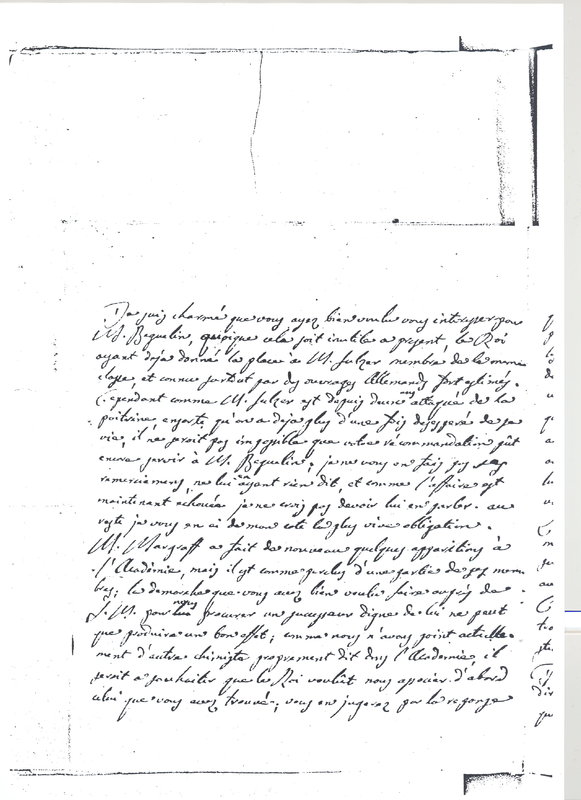 Je suis charmé que vous ayez bien voulu vous interesser pour
M. Beguelin, quoique cela soit inutile a present, le Roi
ayant deja donné la place à M. Sulzer membre de la meme
classe, et connu surtout par des ouvrages Allemands fort estimés.
Cependant comme M. Sulzer est depuis attaqué de la
poitrine, ensorte qu'on a deja plus d'une fois desesperé de sa
vie, il ne seroit pas impossible que votre recommandation pût
encore servir à M. Beguelin. je ne vous en fais pas ses
remerciemens, ne lui en ayant rien dit et comme l'affaire est
maintenant échouée je ne crois pas devoir lui en parler. au
reste je vous en ai de mon coté la plus vive obligation.
M. Margraff a fait de nouveau quelques apparitions à
l'Académie, mais il est comme perclus d'une partie de ses mem
bres; la demarche que vous avez bien voulu faire auprès de
S. M. pour nous procurer un successeur digne de lui ne peut
que produire un bon effet; comme nous n'avons point actuelle-
ment d'autre chimiste proprement dit dans l'Academie, il
seroit a souhaiter que le Roi voulût nous associer d'abord
celui que vous avez trouvé; vous en jugerez par la reponse